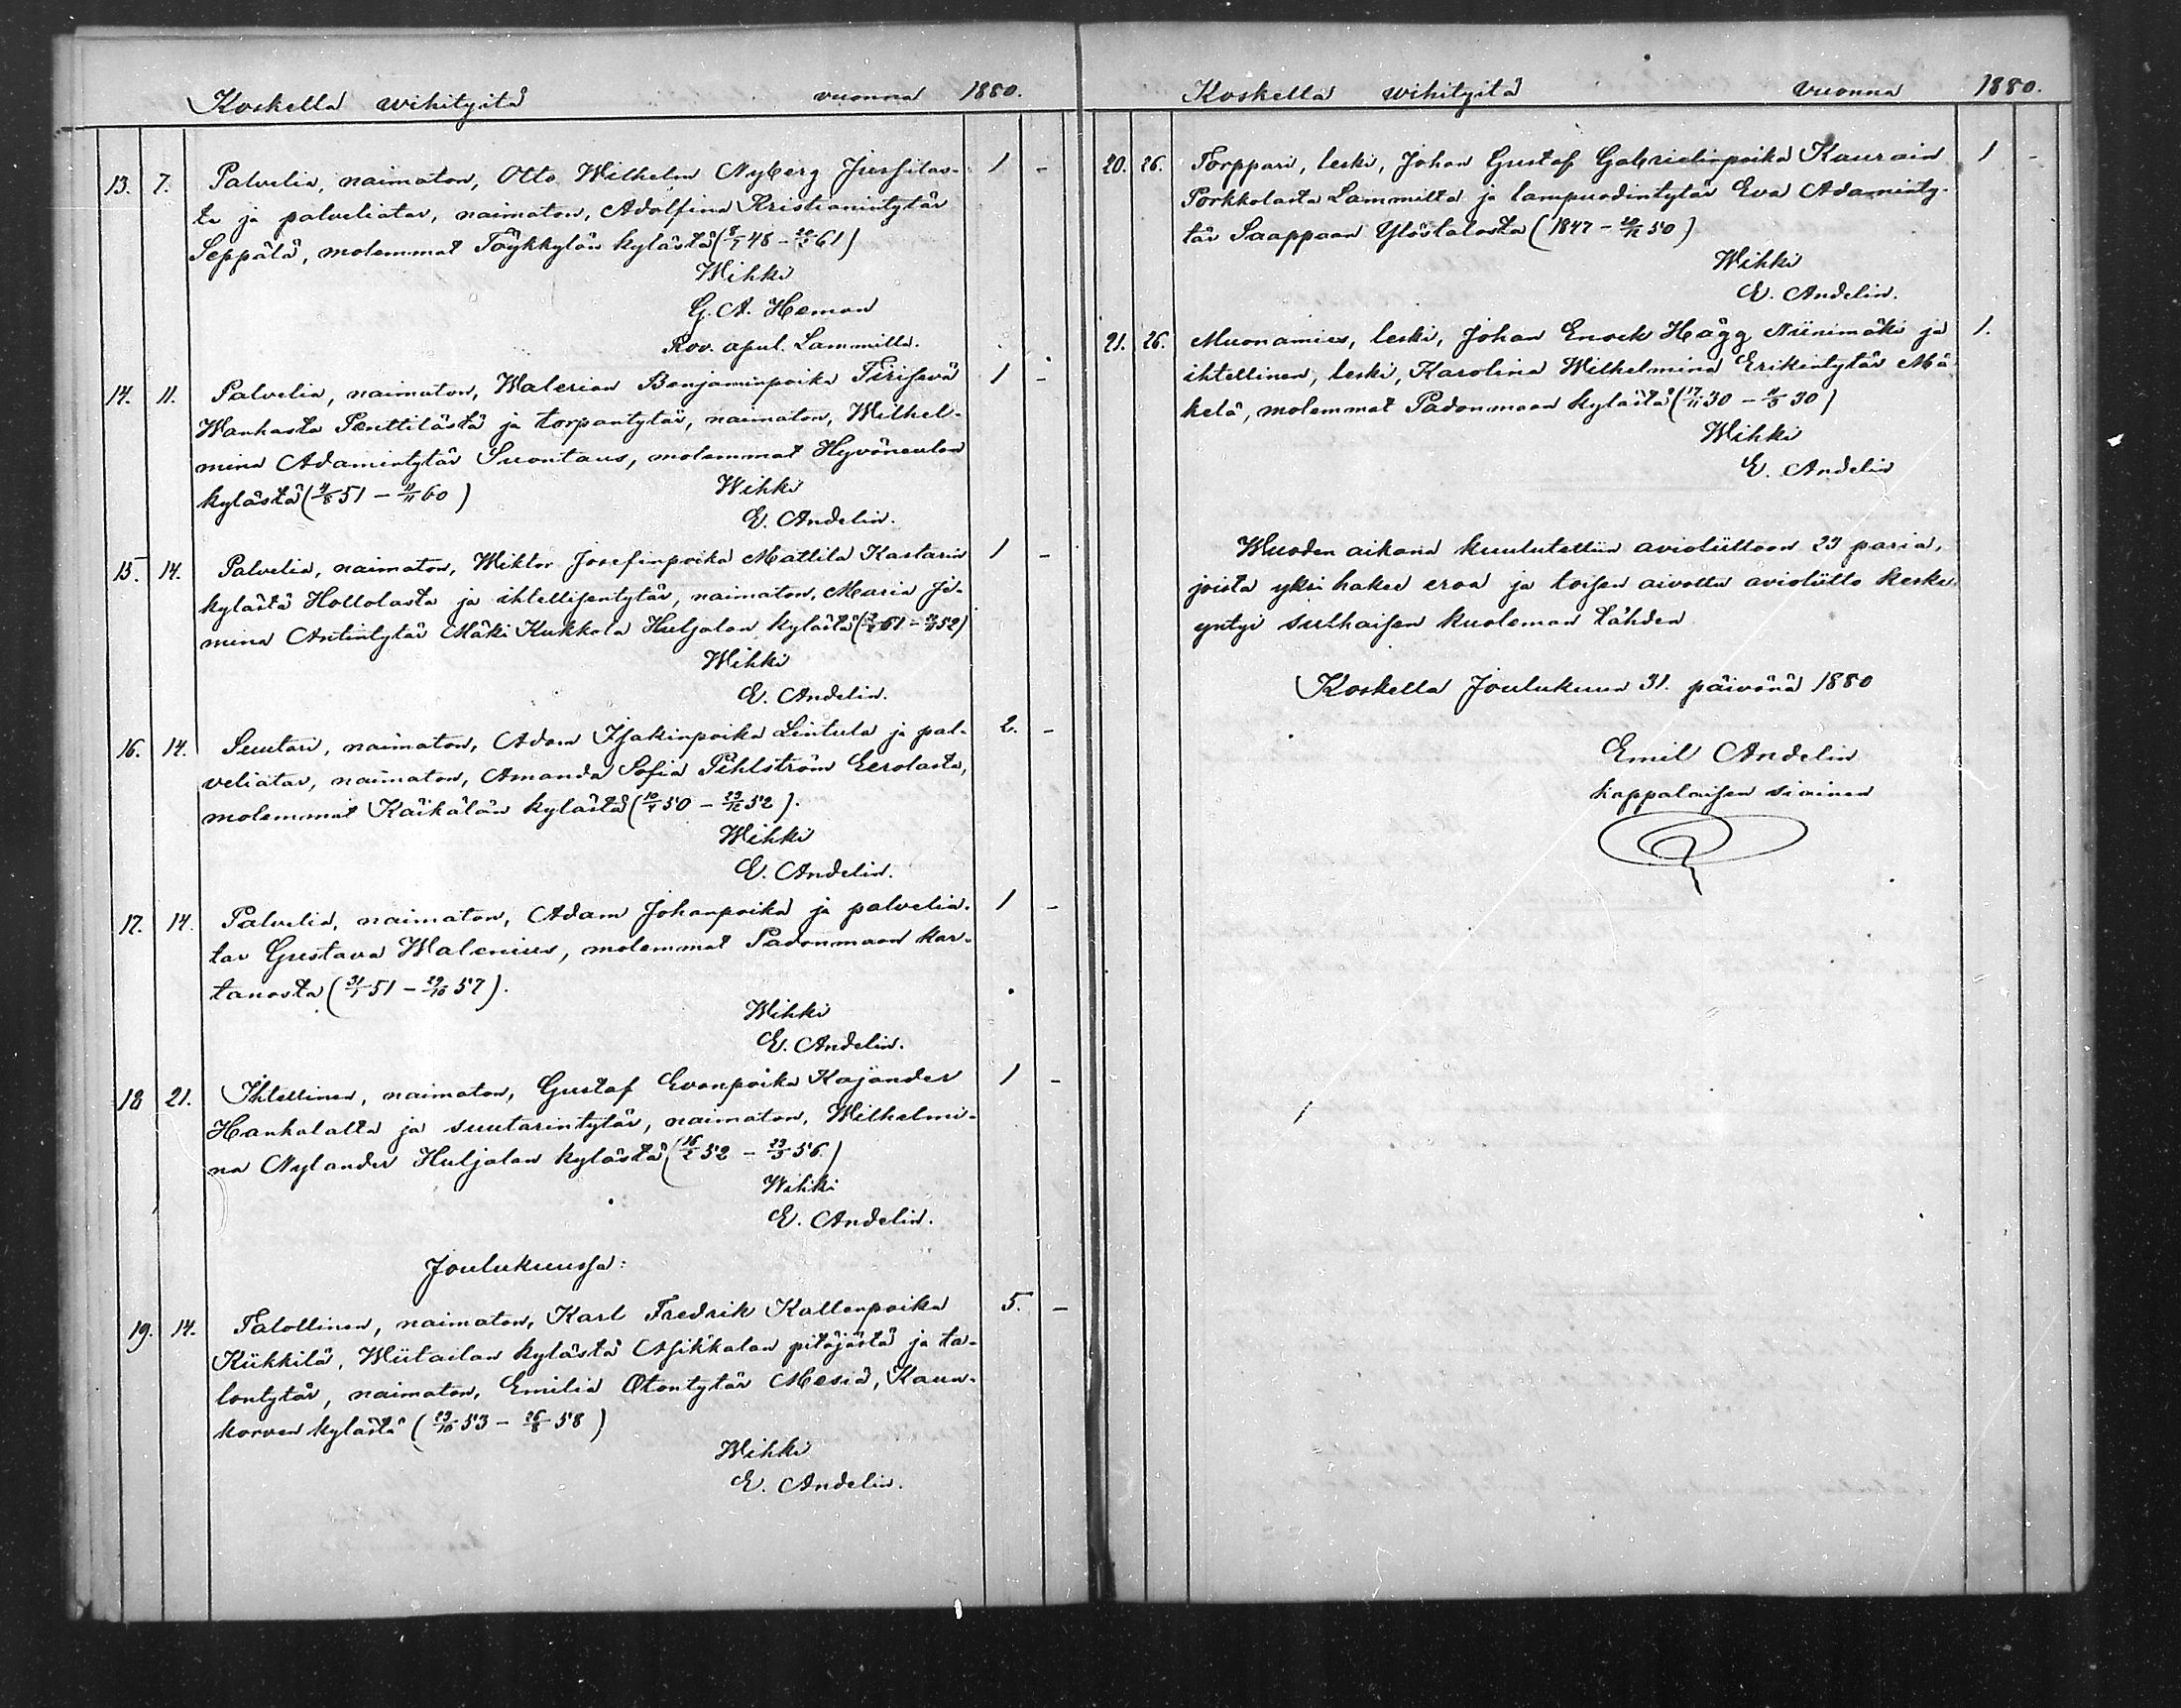 Koskella wihityitä vuonna 1880.
13. 7. Palvelia, naimaton, Otto Wilhelm Nyberg Jussilas- 1 -
ta ja palveliatar, naimaton, Adolfina Kristianintytär
Seppälä, molemmat Töykkylän kylästä
Wihki
G. A. Heman
Rov. apul. Lammilla.
14. 11. Palvelia, naimaton, Walerian Benjaminpoika Tirisevä 1 -
Wanhasta Penttilästä ja torpantytär, naimaton, Wilhel-
mina Adamintytär Suontaus, molemmat Hyvöneulan
kylästä (4/8 51 – 11/11 60)
Wihki
E. Andelin.
15. 14. Palvelia, naimaton, Wiktor Josefinpoika Mattila Kastarin 1 -
kylästä Hollolasta ja ihtellisentytär, naimaton, Maria Je-
mina Antintytär Mäki Kukkola Huljalan kylästä
Wihki
E. Andelin.
16. 14. Suutari, naimaton, Adam Isakinpoika Lintula ja pal- 2. -
veliatar, naimaton, Amanda Sofia Pihlström Eerolasta,
molemmat Käikälän kylästä (10/4 50 – 23/12 52).
Wihki
E. Andelin.
17. 14. Palvelia, naimaton, Adam Johanpoika ja palvelia- 1 -
tar Gustava Walenius, molemmat Padonmaan kar-
tanosta (31/1 51 – 29/10 57).
Wihki
E. Andelin.
18 21. Ihtellinen, naimaton, Gustaf Evanpoika Kajander 1 -
Hankalalta ja suutarintytär, naimaton, Wilhelmi-
na Nylander Huljalan kylästä (16/2 52 – 23/3 56)
Wihki
E. Andelin.
Joulukuussa:
19. 14. Talollinen, naimaton, Karl Fredrik Kallenpoika 5. -
Kükkilä, Wiitailan kylästä Asikkalan pitäjästä ja ta-
lontytär, naimaton, Emilia Otontytär Mesiä, Kaun-
korven kylästä (23/10 53 – 26/8 58)
Wihki
E. Andelin.
Koskella wihityitä vuonna 1880.
20. 26. Torppari, leski, Johan Gustaf Gabrielinpoika Kaurain 1 -
Porkkolasta Lammilta ja lampuodintytär Eva Adaminty-
tär Saappaan Ylöstalosta (1847 – 50)
Wihki
E. Andelin.
21. 26. Muonamies, leski, Johan Enock Hägg Niinimäki ja 1.
ihtellinen, leski, Karolina Wilhelmina Erikintytär Mä-
kelä, molemmat Padonmaan kylästä (17/11 30 – 30)
Wihki
E. Andelin
Wuoden aikana kuulutettiin avioliittoon 23 paria,
joista yksi hakee eroa ja toisen aivottu avioliitto keske-
yntyi sulhaisen kuoleman tähden
Koskella Joulukuun 31. päivänä 1880
Emil Andelin
kappalaisen siainen